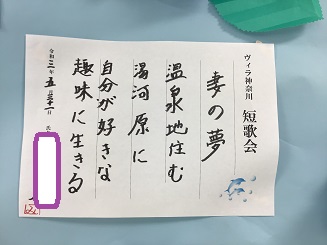 ヴィラ神奈川 短歌会
妻の夢
温泉地住む
湯河原に
自分が好きな
趣味に生きる
令和三年五月三十一日
氏